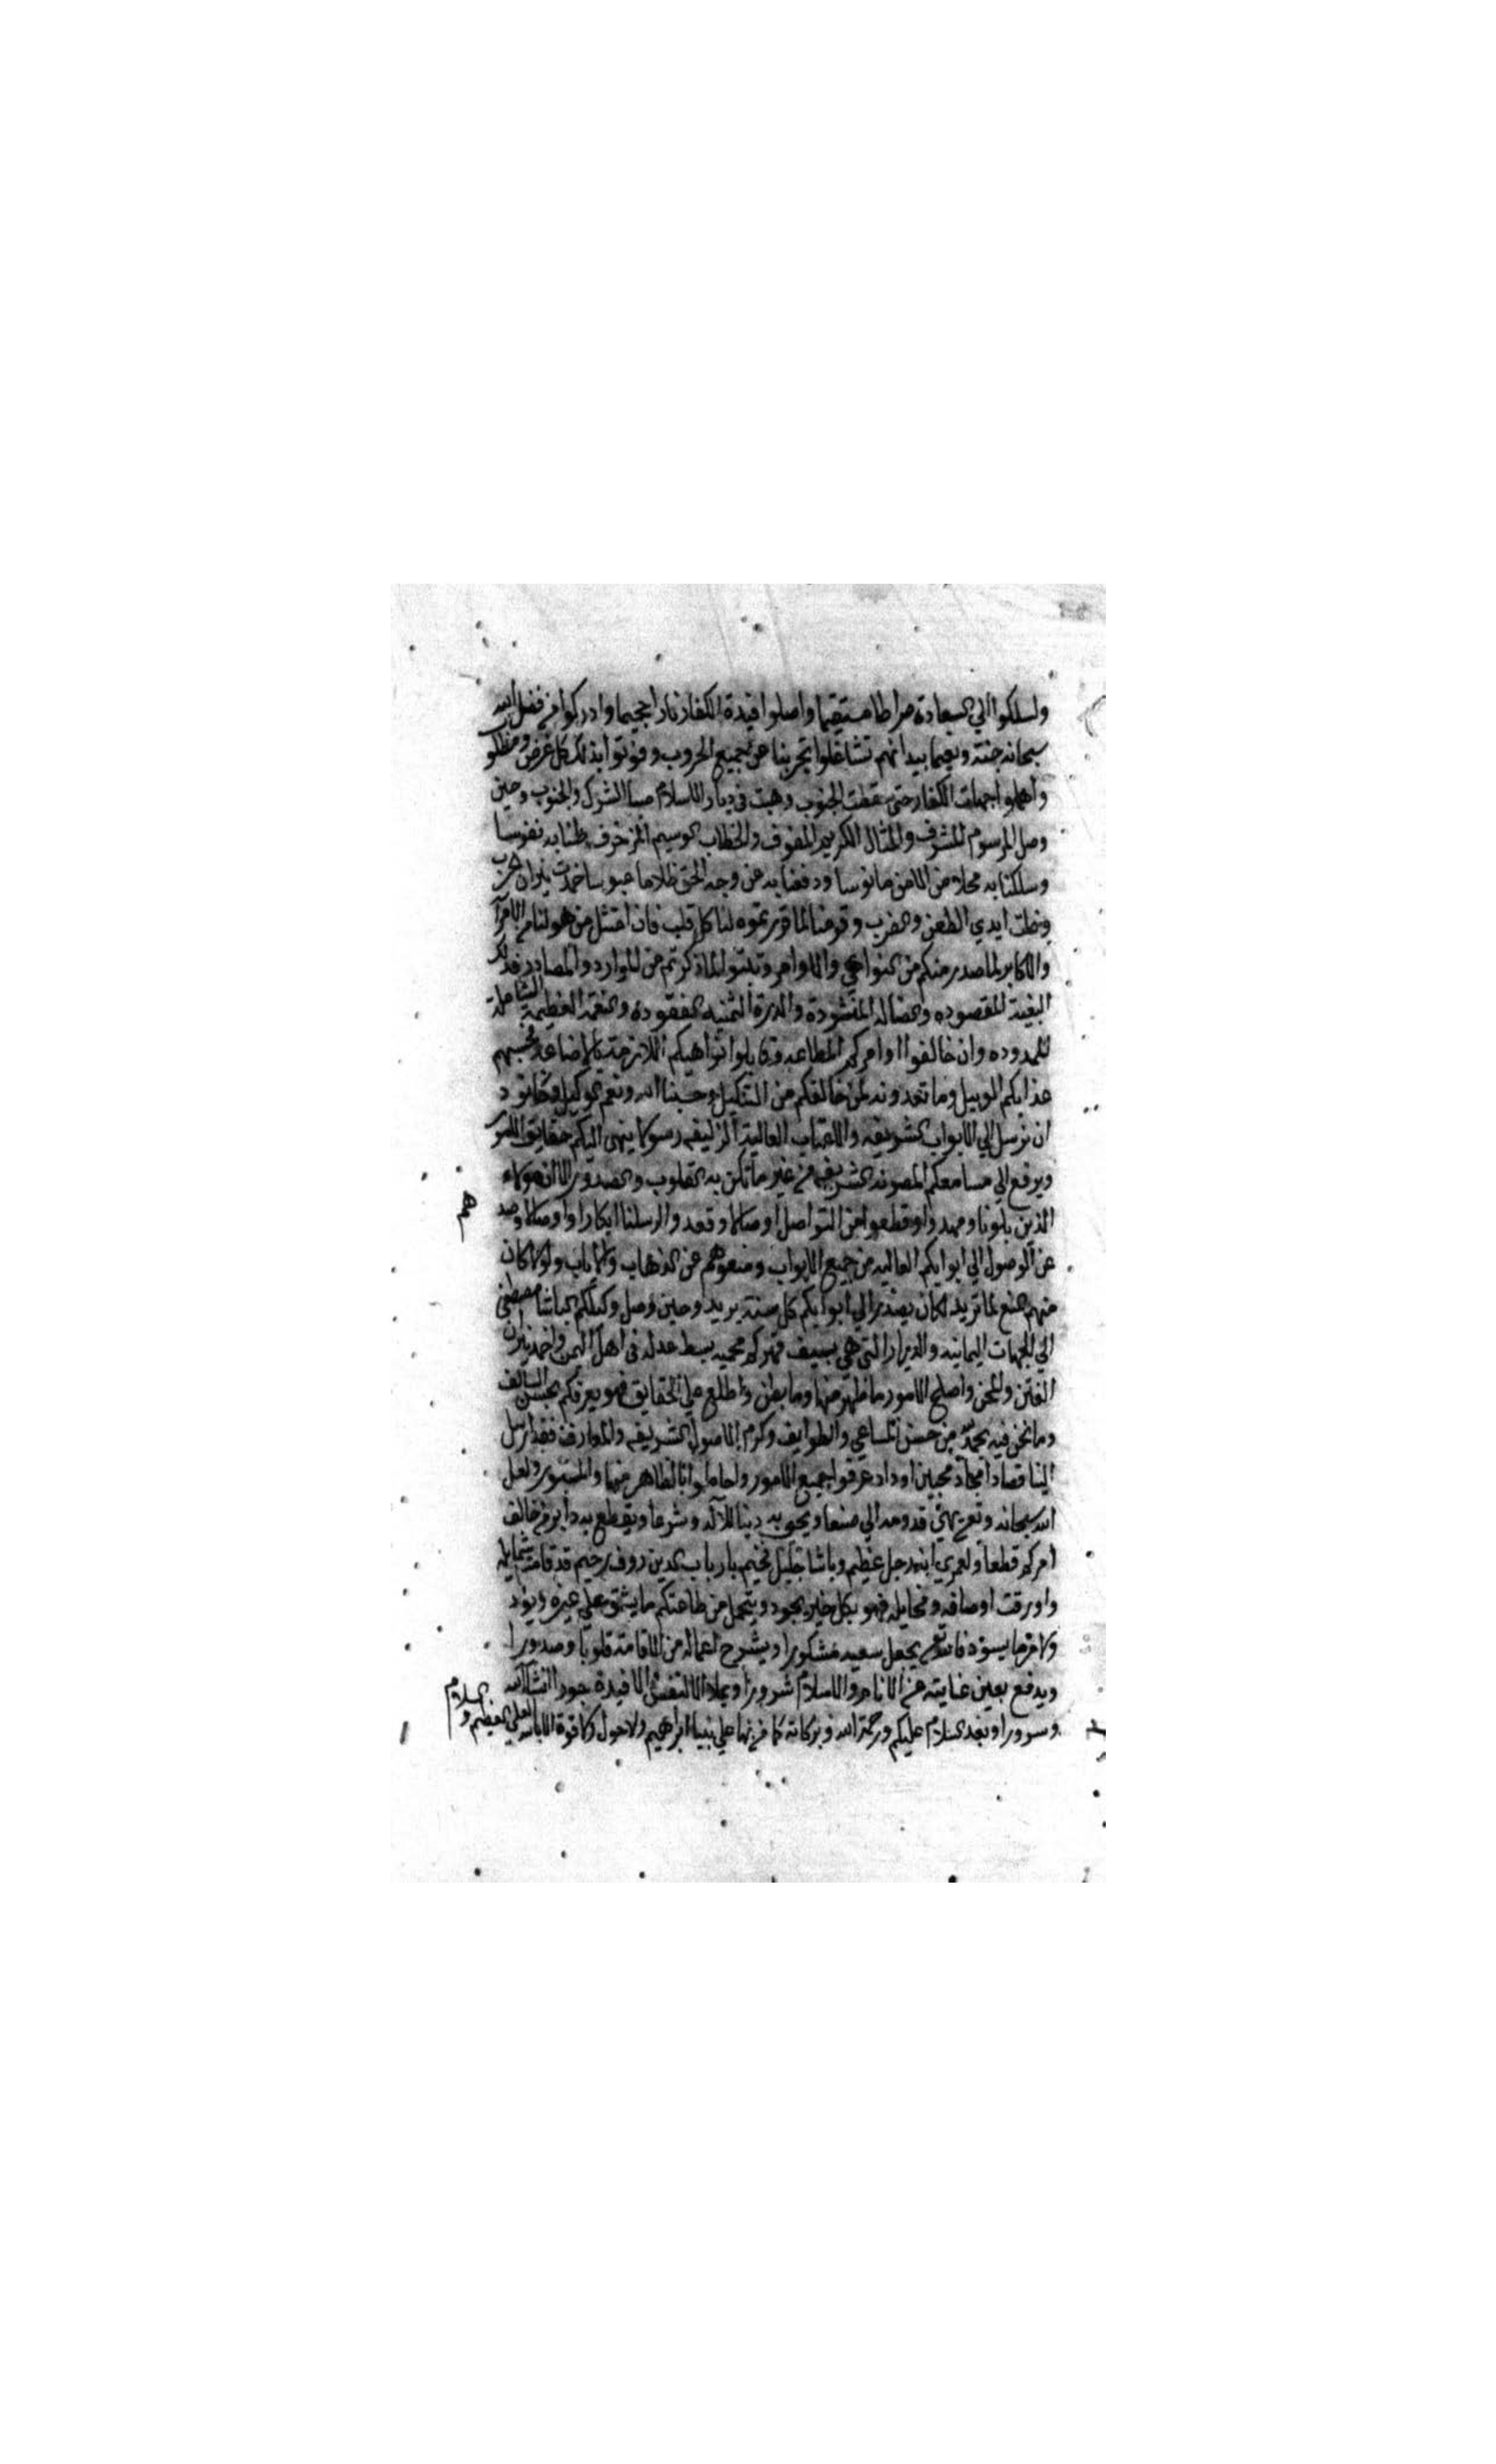 ولسلكوا الي السعادة صراطا مستقيما واصلوا افيدة الكفار نارا جحيما وادركوا من فضل الله
سبحانه جنته ونعيما بيد انهم تشاغلوا بحربنا عن جميع الحروب وفوتوا بذلك كل غرض ومطلوب
واهملوا جهات الكفار حتى سقطت الجنوب وهبت في ديار الاسلام صبا الشرك والجنوب وحين
وصل المرسوم المشرف والمثال الكريم المفوف والخطاب الوسيم المزخرف طبنا به نفوسا
وسلكنا به محلا من الامن مانوسا ودفعنا به عن وجه الحق ظلاما عبوسا خمدت نيران الحرب
ايدي الطعن والضرب لنا كل قلب فان امتثل من هو لنا من الامرآ
والاكابر لما صدر منكم من النواهي والاوامر وثبتوا لما ذكرتم من الموارد والمصادر فذلك
البغية المقصوده والضاله المنشودة والدرة الثمينه المفقوده والنعمة العظيمة الشاملة
الممدوده وان خالفوا اوامركم المطاعه وقابلوا نواهيكم اللازمة بالاضاعه فحسبهم
عذابكم الوبيل وما تعدونه لمن خالفكم من التنكيل وحسبنا الله ونعم الوكيل وكنا نود
ان نرسل الي الابواب الشريفه والاعتاب العالية المنيفه رسولا ينهى اليكم حقايق الامور
ويرفع الي مسامعكم المصونه الشريفه من غير ما تكن به القلوب والصدور الا ان هولاء
الذين بلونا ومهدوا وقطعوا من التواصل اوصالا وقعدوا لرسلنا ابكارا واوصالا وصد
هم
عن الوصول الي ابوابكم العاليه من جميع الابواب ومنعوهم عن الذهاب والاياب ولولا كان
منهم المنع لما نريد لكان يصدر الي ابوابكم كل سنة بريد وحين وصل وكيلكم الباشا مصطفى
الي الجهات اليمانيه والديار التي هي بسيف قهركم محميه بسط عدله في اهل اليمن واخمد نيران
الفتن والمحن واصلح الامور ما ظهر منها وما بطن واطلع علي الحقايق فهو يعرفكم بحسن السالف
وما نحن فيه بحمد الله من حسن المساعي والطوايف وكرم الاصول الشريفه والمعارف فقد ارسل
الينا قصادا امجاد محبين اوداد عرفوا جميع الامور واحاطوا بالظاهر منها والمستور ولعل
الله سبحانه وتعالى يهني قدومه الي صنعا ويحيي به دينا لاله وشرعا ويقطع به دابر من خالف
امركم قطعا ولعمري انه رجل عظيم وباشا جليل فخيم بارباب الدين روف رحيم قد قامت شمايله
واورقت اوصافه ومخايله فهو بكل خير يجود ويتحمل من طاعتكم ما يشق علي غيره ويؤد
فالله تعالى يجعل سعيه مشكورا ويشرح اعماله من الاقامة قلوبا وصدورا
ويدفع بعين عنايته عن الانام والاسلام شرورا ويملا الانفس الافيدة حبورا انشاالله
وسرورا وبعد السلام عليكم ورحمة الله وبركاته كما من بها علي نبينا ابراهيم ولا حول ولا قوة الا بالله العلي العظيم والسلام